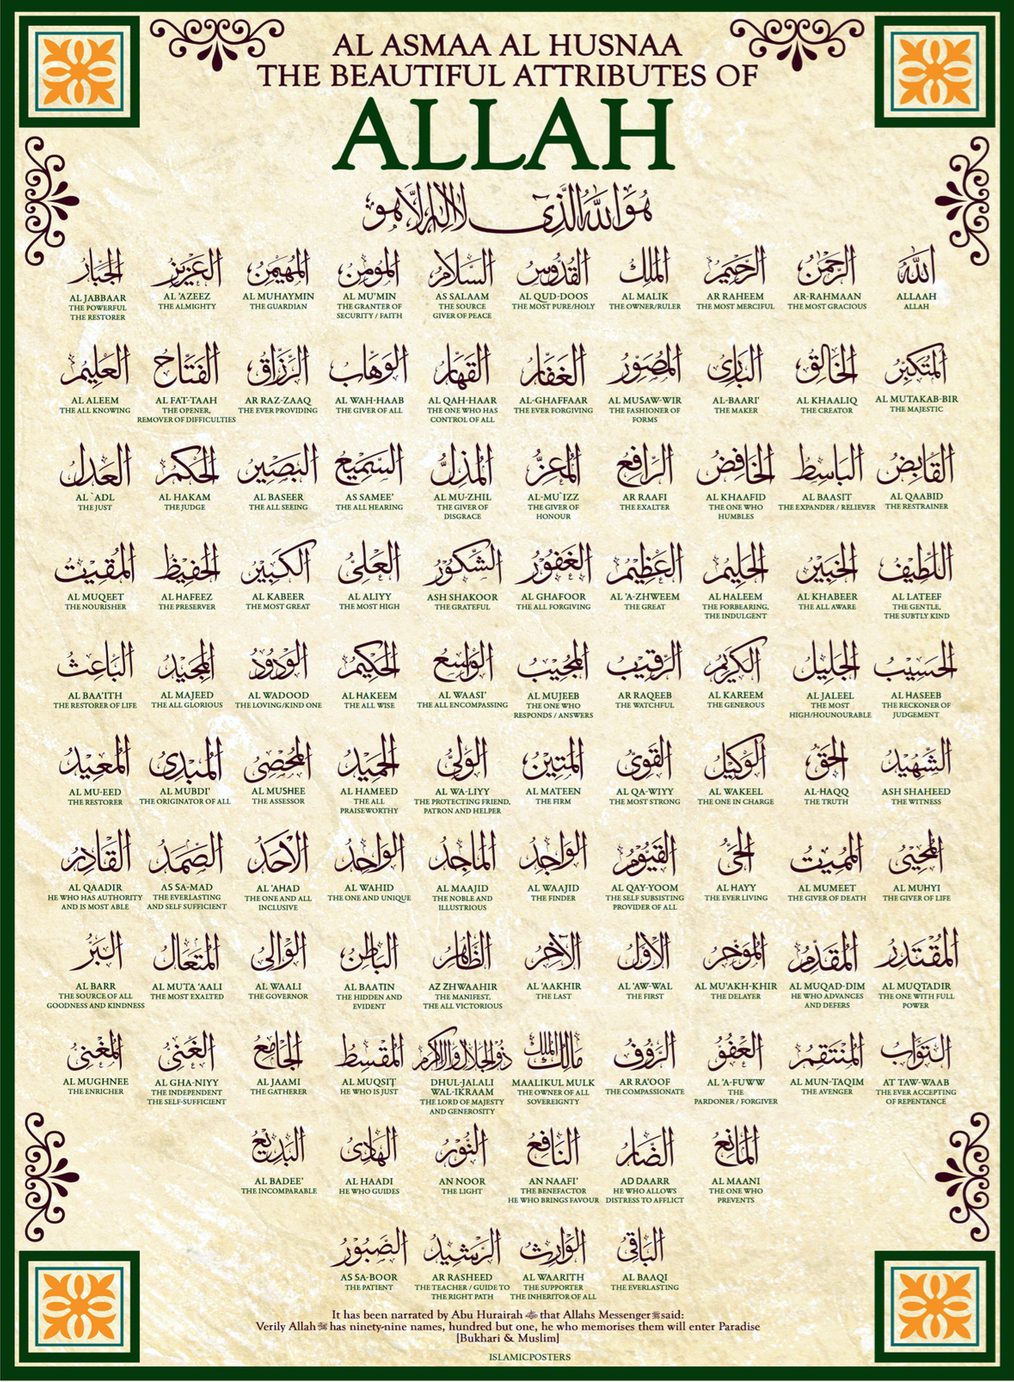 AL ASMAA AL HUSNAA
THE BEAUTIFUL ATTRIBUTES OF
ALLAH
هُوَاللهُ الَّذِىْ لَا اِلٰهَ اِلَّا هُوَ
الله الرَّحْمٰنُ الرَّحِيْمُ المَلِكُ القُدُّوسُ السَّلَامُ المُؤْمِنُ المُهَيْمِنُ العَزِيْزُ الجَبَّارُ
ALLAAH AR-RAHMAAN AR RAHEEM AL MALIK AL QUD-DOOS AS SALAAM AL MU'MIN AL MUHAYMIN AL 'AZEEZ AL JABBAAR
ALLAH THE MOST GRACIOUS THE MOST MERCIFUL THE OWNER/RULER THE MOST PURE/HOLY THE SOURCE THE GRANTER OF THE GUARDIAN THE ALMIGHTY THE POWERFUL
GIVER OF PEACE SECURITY / FAITH THE RESTORER
المُتَكَبِّرُ الخَالِقُ البَارِئُ المُصَوِّرُ الغَفَّارُ القَهَّارُ الوَهَّابُ الرَّزَّاقُ الفَتَّاحُ العَلِيْمُ
AL MUTAKAB-BIR AL KHAALIQ AL-BAARI' AL MUSAW-WIR AL-GHAFFAAR AL QAH-HAAR AL WAH-HAAB AR RAZ-ZAAQ AL FAT-TAAH AL ALEEM
THE MAJESTIC THE CREATOR THE MAKER THE FASHIONER OF THE EVER FORGIVING THE ONE WHO HAS THE GIVER OF ALL THE EVER PROVIDING THE OPENER, THE ALL KNOWING
FORMS CONTROL OF ALL REMOVER OF DIFFICULTIES
القَابِضُ البَاسِطُ الخَافِضُ الرَّافِعُ المُعِزُّ المُذِلُّ السَّمِيْعُ البَصِيْرُ الحَكَمُ العَدْلُ
AL QAABID AL BAASIT AL KHAAFID AR RAAFI AL-MU`IZZ AL MU-ZHIL AS SAMEE' AL BASEER AL HAKAM AL `ADL
THE RESTRAINER THE EXPANDER / RELIEVER THE ONE WHO THE EXALTER THE GIVER OF THE GIVER OF THE ALL HEARING THE ALL SEEING THE JUDGE THE JUST
HUMBLES HONOUR DISGRACE
اللَّطِيْفُ الخَبِيْرُ الحَلِيْمُ العَظِيْمُ الغَفُوْرُ الشَّكُوْرُ العَلِىُّ الكَبِيْرُ الحَفِيْظُ المُقِيْتُ
AL LATEEF AL KHABEER AL HALEEM AL 'A-ZHWEEM AL GHAFOOR ASH SHAKOOR AL ALIYY AL KABEER AL HAFEEZ AL MUQEET
THE GENTLE, THE ALL AWARE THE FORBEARING, THE GREAT THE ALL FORGIVING THE GRATEFUL THE MOST HIGH THE MOST GREAT THE PRESERVER THE NOURISHER
THE SUBTLY KIND THE INDULGENT
الحَسِيْبُ الجَلِيْلُ الكَرِيْمُ الرَّقِيْبُ المُجِيْبُ الوَاسِعُ الحَكِيْمُ الوَدُوْدُ المَجِيْدُ البَاعِثُ
AL HASEEB AL JALEEL AL KAREEM AR RAQEEB AL MUJEEB AL WAASI' AL HAKEEM AL WADOOD AL MAJEED AL BAA'ITH
THE RECKONER OF THE MOST THE GENEROUS THE WATCHFUL THE ONE WHO THE ALL ENCOMPASSING THE ALL WISE THE LOVING/KIND ONE THE ALL GLORIOUS THE RESTORER OF LIFE
JUDGEMENT HIGH/HOUNOURABLE RESPONDS / ANSWERS
الشَّهِيْدُ الحَقُّ الوَكِيْلُ القَوِىُّ المَتِيْنُ الوَلِىُّ الحَمِيْدُ المُحْصِىْ المُبْدِئُ المُعِيْدُ
ASH SHAHEED AL-HAQQ AL WAKEEL AL QA-WIYY AL MATEEN AL WA-LIYY AL HAMEED AL MUSHEE AL MUBDI' AL MU-EED
THE WITNESS THE TRUTH THE ONE IN CHARGE THE MOST STRONG THE FIRM THE PROTECTING FRIEND, THE ALL THE ASSESSOR THE ORIGINATOR OF ALL THE RESTORER
PATRON AND HELPER PRAISEWORTHY
المُحْيِىْ المُمِيْتُ الحَىُّ القَيُّوْمُ الوَاجِدُ المَاجِدُ الوَاحِدُ الأَحَدُ الصَّمَدُ القَادِرُ
AL MUHYI AL MUMEET AL HAYY AL QAY-YOOM AL WAAJID AL MAAJID AL WAHID AL 'AHAD AS SA-MAD AL QAADIR
THE GIVER OF LIFE THE GIVER OF DEATH THE EVER LIVING THE SELF SUBSISTING THE FINDER THE NOBLE AND THE ONE AND UNIQUE THE ONE AND ALL THE EVERLASTING HE WHO HAS AUTHORITY
PROVIDER OF ALL ILLUSTRIOUS INCLUSIVE AND SELF SUFFICIENT AND IS MOST ABLE
المُقْتَدِرُ المُقَدِّمُ المُؤَخِّرُ الأَوَّلُ الآخِرُ الظَّاهِرُ البَاطِنُ الوَالِى المُتَعَالُ البَرُّ
AL MUQTADIR AL MUQAD-DIM AL MU'AKH-KHIR AL 'AW-WAL AL 'AAKHIR AZ ZHWAAHIR AL BAATIN AL WAALI AL MUTA 'AALI AL BARR
THE ONE WITH FULL HE WHO ADVANCES THE DELAYER THE FIRST THE LAST THE MANIFEST, THE HIDDEN AND THE GOVERNOR THE MOST EXALTED THE SOURCE OF ALL
POWER AND DEFERS THE ALL VICTORIOUS EVIDENT GOODNESS AND KINDNESS
التَّوَّابُ المُنْتَقِمُ العَفُوُّ الرَّؤُوْفُ مَالِكُ المُلْكِ ذُو الجَلَالِ وَالإِكْرَامِ المُقْسِطُ الجَامِعُ الغَنِىُّ المُغْنِىْ
AT TAW-WAAB AL MUN-TAQIM AL 'A-FUWW AR RA'OOF MAALIKUL MULK DHUL-JALALI AL MUQSIT AL JAAMI AL GHA-NIYY AL MUGHNEE
WAL-IKRAAM
THE EVER ACCEPTING THE AVENGER THE THE COMPASSIONATE THE OWNER OF ALL THE LORD OF MAJESTY HE WHO IS JUST THE GATHERER THE INDEPENDENT THE ENRICHER
OF REPENTANCE PARDONER / FORGIVER SOVEREIGNTY AND GENEROSITY THE SELF-SUFFICIENT
المَانِعُ الضَّارُّ النَّافِعُ النُّوْرُ الهَادِىْ البَدِيْعُ
AL MAANI AD DAARR AN NAAFI' AN NOOR AL HAADI AL BADEE'
THE ONE WHO HE WHO ALLOWS THE BENEFACTOR THE LIGHT HE WHO GUIDES THE INCOMPARABLE
PREVENTS DISTRESS TO AFFLICT HE WHO BRINGS FAVOUR
البَاقِىْ الوَارِثُ الرَّشِيْدُ الصَّبُوْرُ
AL BAAQI AL WAARITH AR RASHEED AS SA-BOOR
THE EVERLASTING THE SUPPORTER THE TEACHER / GUIDE TO THE PATIENT
THE INHERITOR OF ALL THE RIGHT PATH
It has been narrated by Abu Hurairah that Allahs Messenger said:
Verily Allah has ninety-nine names, hundred but one, he who memorises them will enter Paradise
[Bukhari & Muslim]
ISLAMICPOSTERS